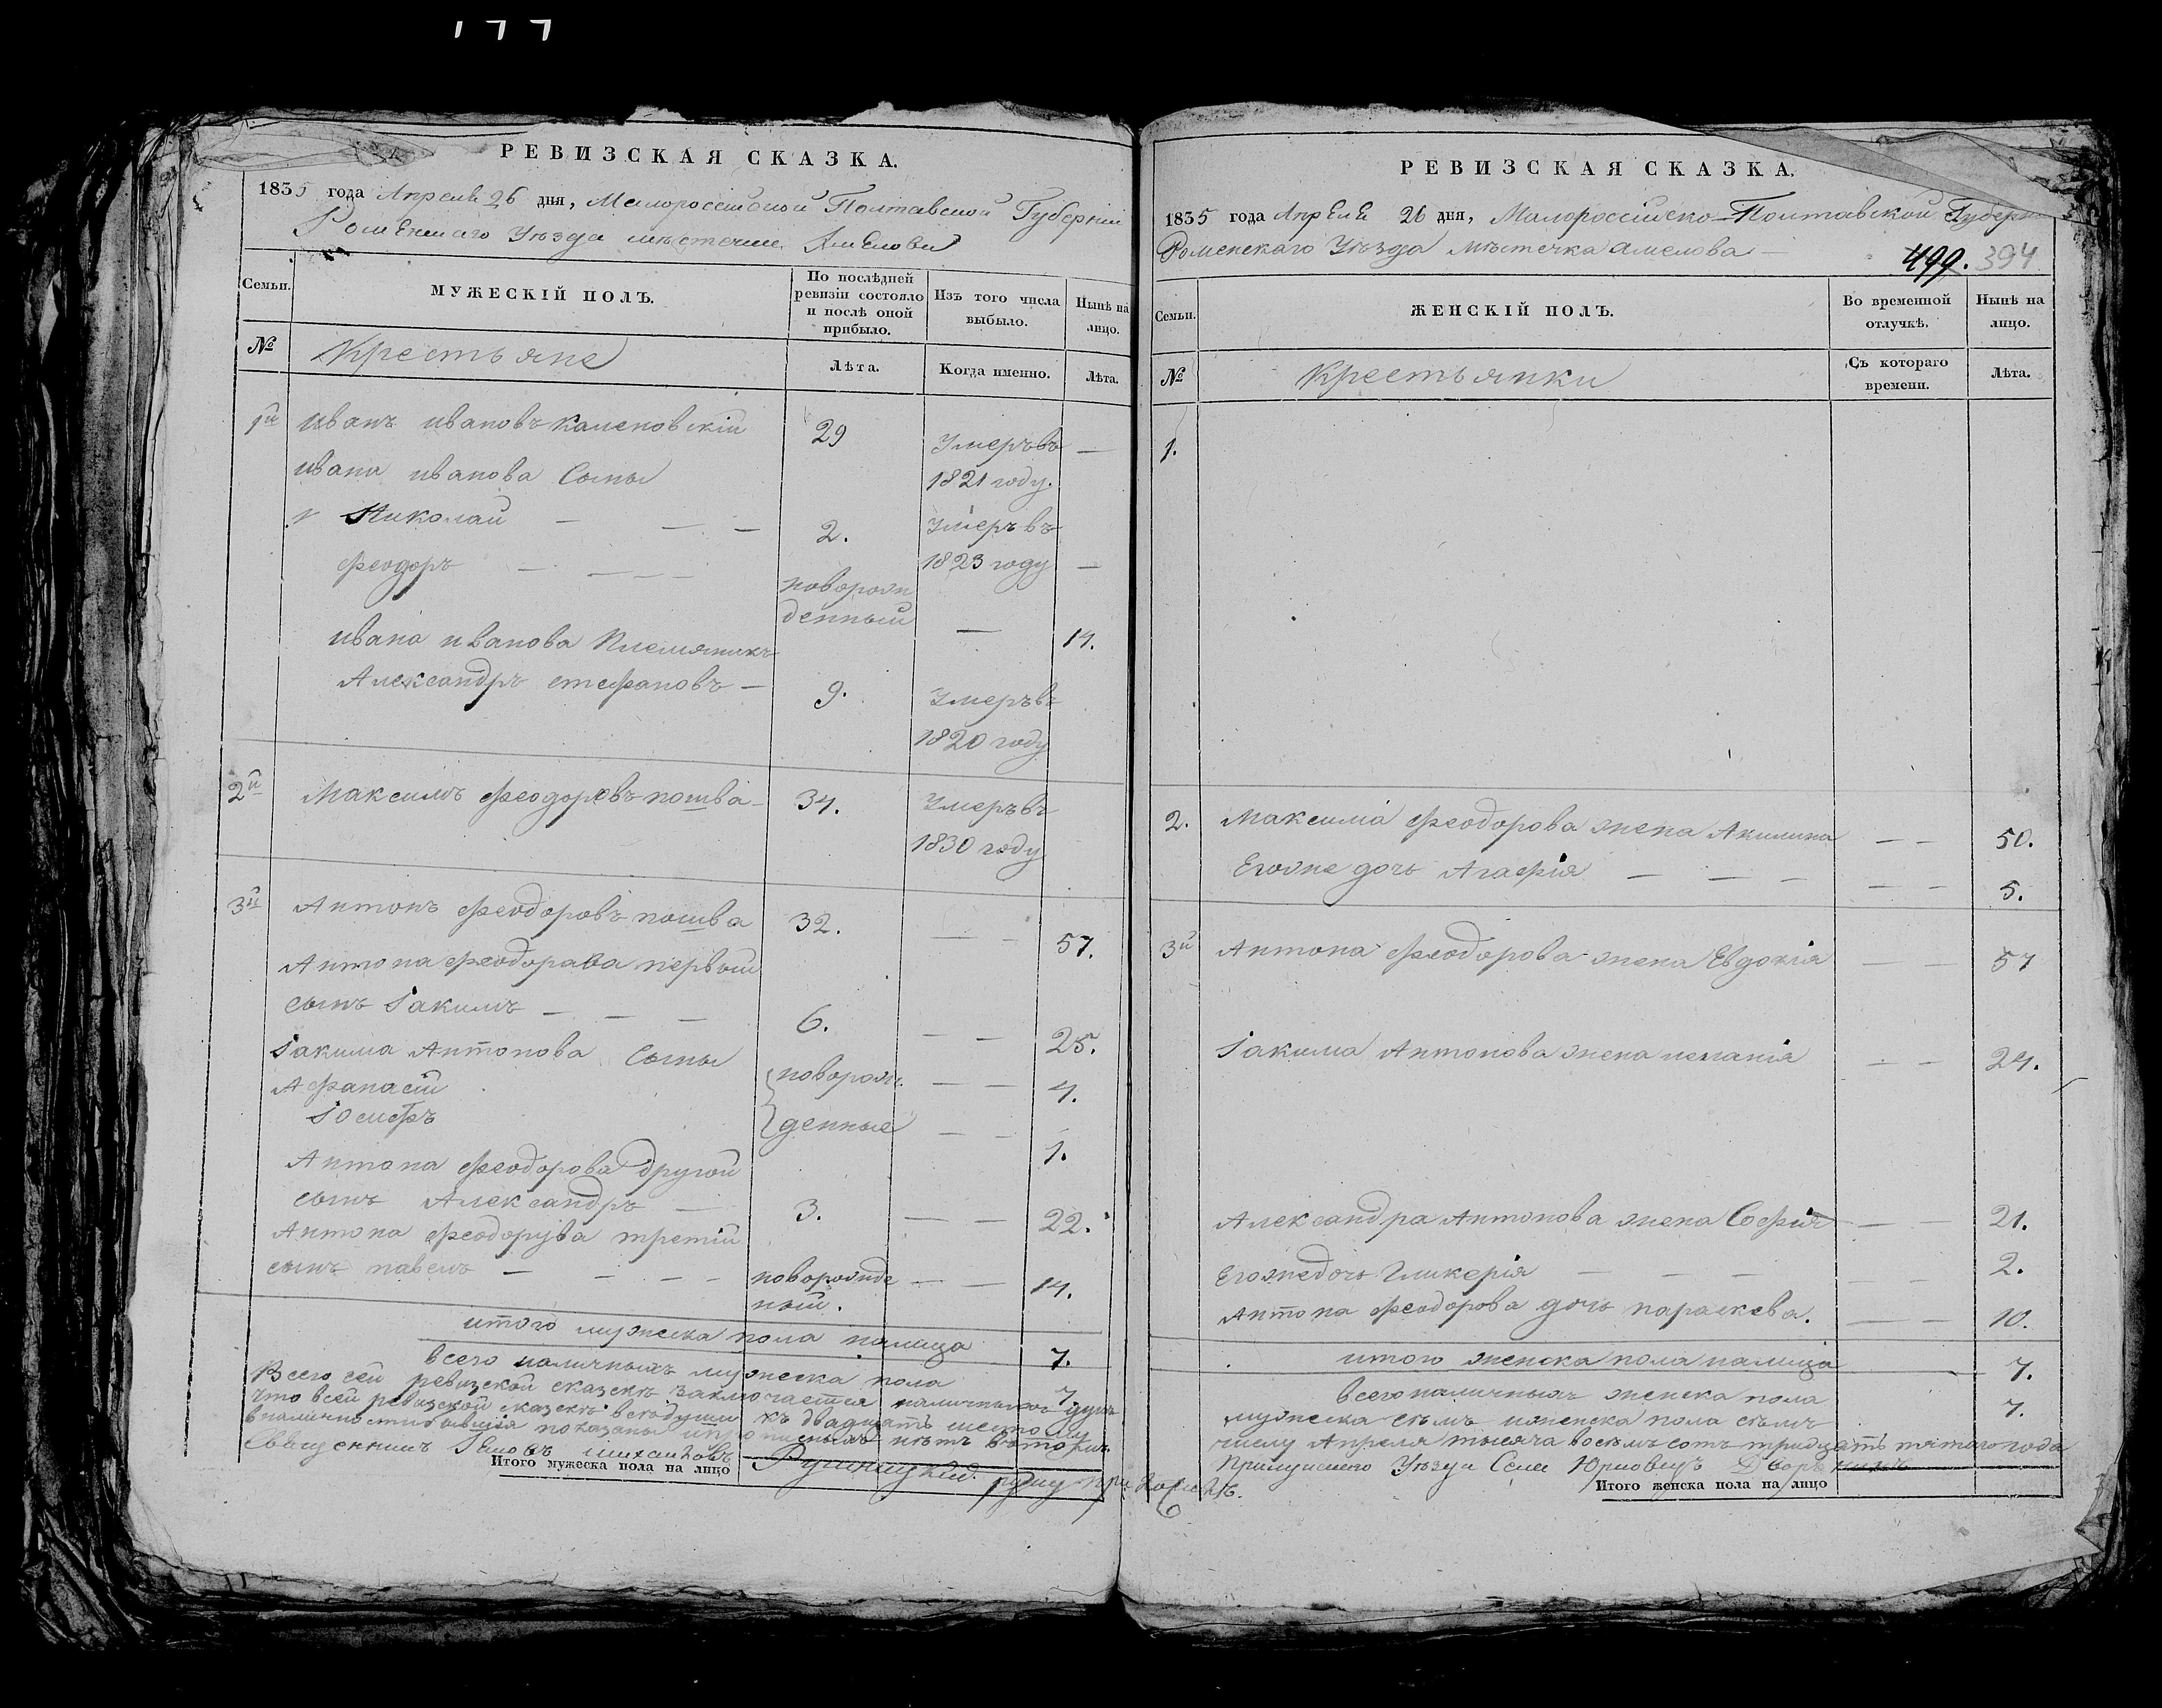 РЕВИЗСКАЯ СКАЗКА.
1835 года Апреля 26 дня, Малороссийской Полтавской Губернии
Роменскаго Уезда местечка Амелова
Семьи. МУЖЕСКІЙ ПОЛЪ. По послѣдней ревизіи состояло и послѣ оной прибыло. Изъ того числа выбыло. Нынѣ на лицо.
№ Крестьяне Лѣта. Когда именно. Лѣта.
1й иванъ ивановъ каленовскій 29 Умеръ въ —
ивана иванова Сыны 1821 году.
Николай — — — 2. Умеръ въ
феодоръ — — — 1823 году —
новорож
денный — 14.
ивана иванова племянникъ
Александръ стефановъ — 9. Умеръ въ
1820 году
2й Максимъ феодоровъ пошва 34. Умеръ въ
1830 году
3й Антонъ феодоровъ пошва 32. — — 57.
Антона феодорова первый
сынъ Іакимъ — — — 6. — — 25.
Іакима Антонова Сыны
Афанасій новорож — — 4.
Іосифъ денные — — 1.
Антона феодорова другой
сынъ Александръ — 3. — — 22.
Антона феодорова третій
сынъ павелъ — — — — новорожде — — 14.
ный.
итого мужеска пола налицо 7.
всего наличныхъ мужеска пола 7
Всего сей ревизской сказкѣ заключается наличныхъ душъ
что всей ревизской сказкѣ въ двадцать шестому
Священникъ
Итого мужеска пола на лицо
РЕВИЗСКАЯ СКАЗКА.
1835 года Апреля 26 дня, Малороссійско-Полтавской Губерн
Роменскаго Уѣзда мѣстечка амелова —
499. 394
Семьи. ЖЕНСКІЙ ПОЛЪ. Во временной отлучкѣ. Нынѣ на лицо.
№ Крестьянки Съ котораго времени. Лѣта.
1.
2. Максима феодорова жена Акилина — — 50.
Егожне дочь Агафія — — — — — 5.
3й Антона феодорова жена Евдокія — — 57
Іакима Антонова жена — — 24.
Александра Антонова жена Софія — — 21.
Егожедочь Гликерія — — — — — 2.
Антона феодорова дочь параскева. — — 10.
итого женска пола налицо 7.
всего наличныхъ женска пола 7.
мужеска семъ иженска пола семъ
числу Апреля тысяча восемъ сотъ тридцать пятого года
Прилуцкого Уезда Села
Итого женска пола на лицо